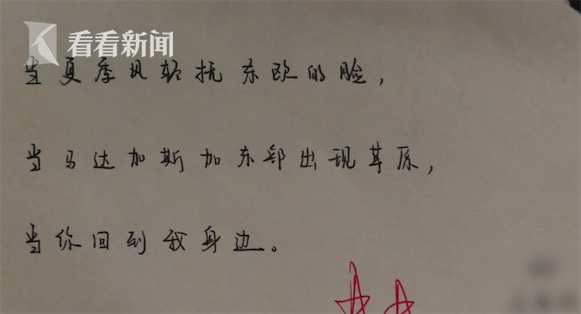 看看新闻
当夏季风轻抚东欧的脸，
当马达加斯加东部出现草原，
当你回到我身边。